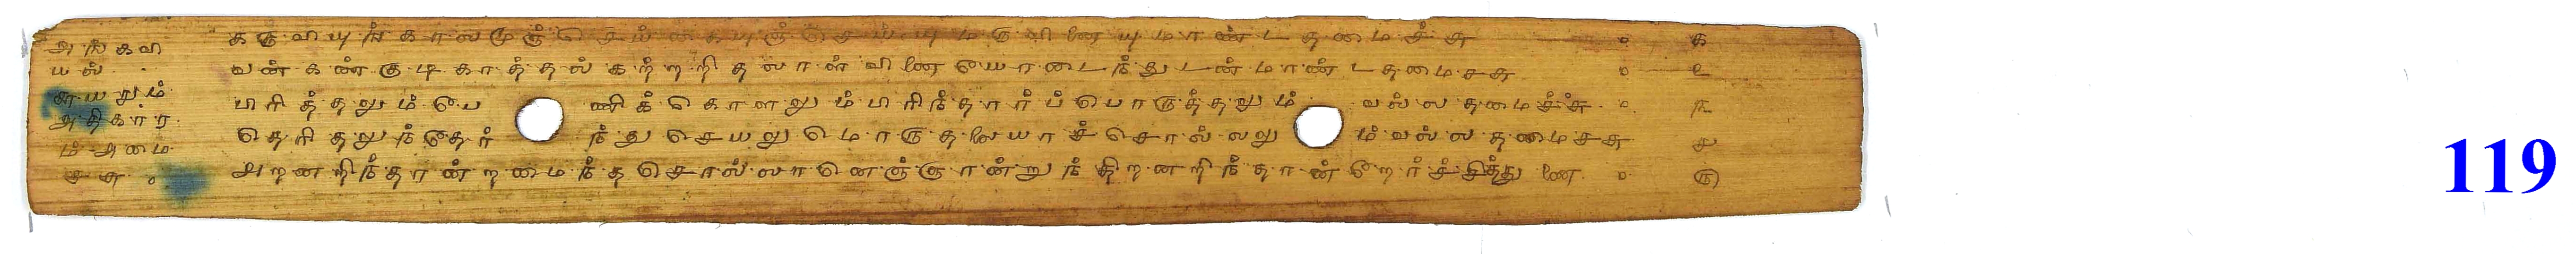 அங்கவி
யல்
கூயறும்
அதிகார
ம் அமை
ச்சு ०
கருவியுங்காலமுஞ்செய்கையுஞ்செய்யுமருவினையுமாண்டதமைச்சு ० ௧
வன்கண்குடிகாத்தல்கற்றறிதலாள்வினையோடைந்துடன்மாண்டதமைசசு ० ௨
பிரித்தலும்பேணிக்கொளலும்பிரிந்தார்ப்பொருத்தலும்வல்லதமைச்சு ० ௩
தெரிதலுந்தேர்ந்துசெயலுமொருதலையாச்சொல்லலும்வல்லதமைசசு ௪
அறனறிந்தான்றமைந்தசொல்லானெஞ்ஞான்றுந்திறனறிந்தான்றேர்ச்சித்துணை ० ௫
119